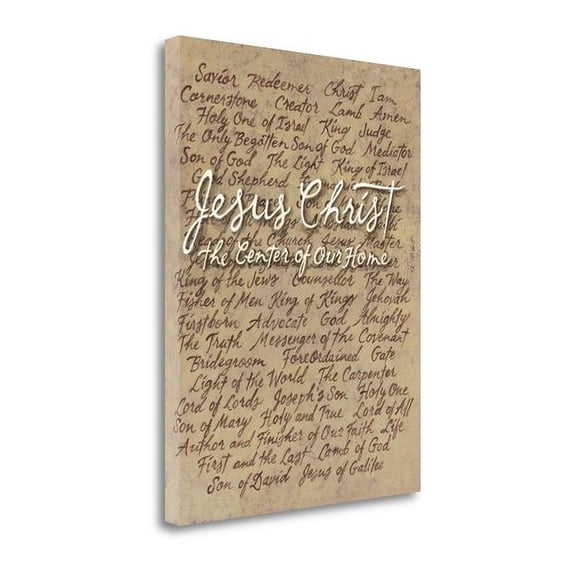 Savior Redeemer Christ I am
Cornerstone Creator Lamb Amen
Holy One of Israel King Judge
The Only Begotten Son of God Mediator
Son of God The Light King of Israel
Good Shepherd
Jesus Christ
Head of the Church Jesus Master
the Center of Our Home
King of the Jews Counsellor The Way
Fisher of Men King of Kings Jehovah
Firstborn Advocate God Almighty
The Truth Messenger of the Covenant
Bridegroom Foreordained Gate
Light of the World The Carpenter
Lord of Lords Joseph's Son Holy One
Son of Mary Holy and True Lord of All
Author and Finisher of Our Faith Life
First and the Last Lamb of God
Son of David Jesus of Galilee